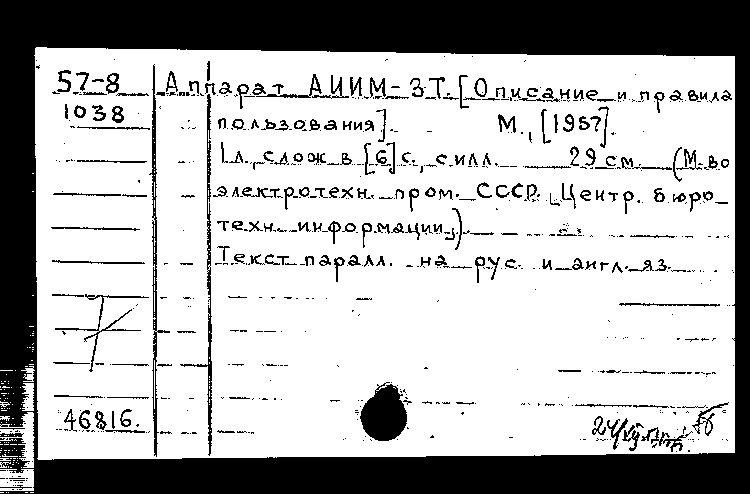 57-8 Аппарат АИИМ-3Т. [Описание и правила
1038 пользования]. М., [1957].
1 л., слож в [6] с., с илл. 29 см. (М-во
электротехн. пром. СССР. Центр. бюро
техн. информации.)
Текст паралл. на рус. и англ. яз.
46816.